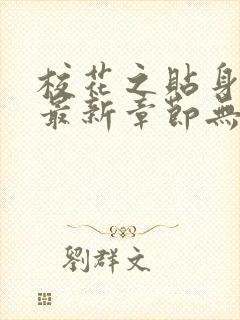 校花之貼身
最新章節無
劉群文